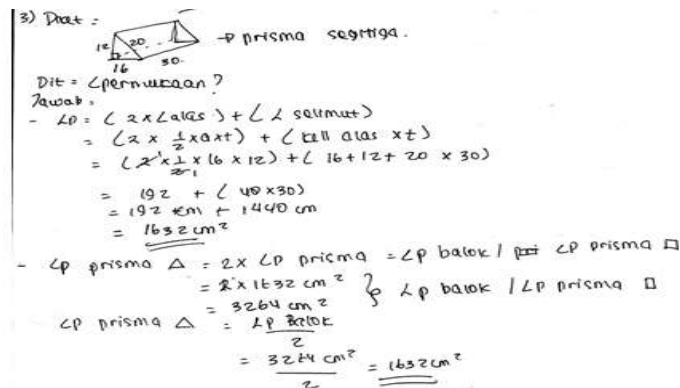 3) Diket :
12 20
16 30
→ prisma segitiga.
Dit = Lpermukaan ?
Jawab :
- Lp = ( 2 x Lalas ) + ( L selimut )
= ( 2 x 1/2 x a x t ) + ( kell alas x t )
= ( 2 x 1/2 x 16 x 12 ) + ( 16 + 12 + 20 x 30 )
= 192 + ( 48 x 30 )
= 192 cm + 1440 cm
= 1632 cm²
- Lp prisma △ = 2 x Lp prisma = Lp balok / Lp prisma □
= 2 x 1632 cm²
= 3264 cm² } Lp balok / Lp prisma □
Lp prisma △ = Lp Balok / 2
= 3264 cm² / 2 = 1632 cm²